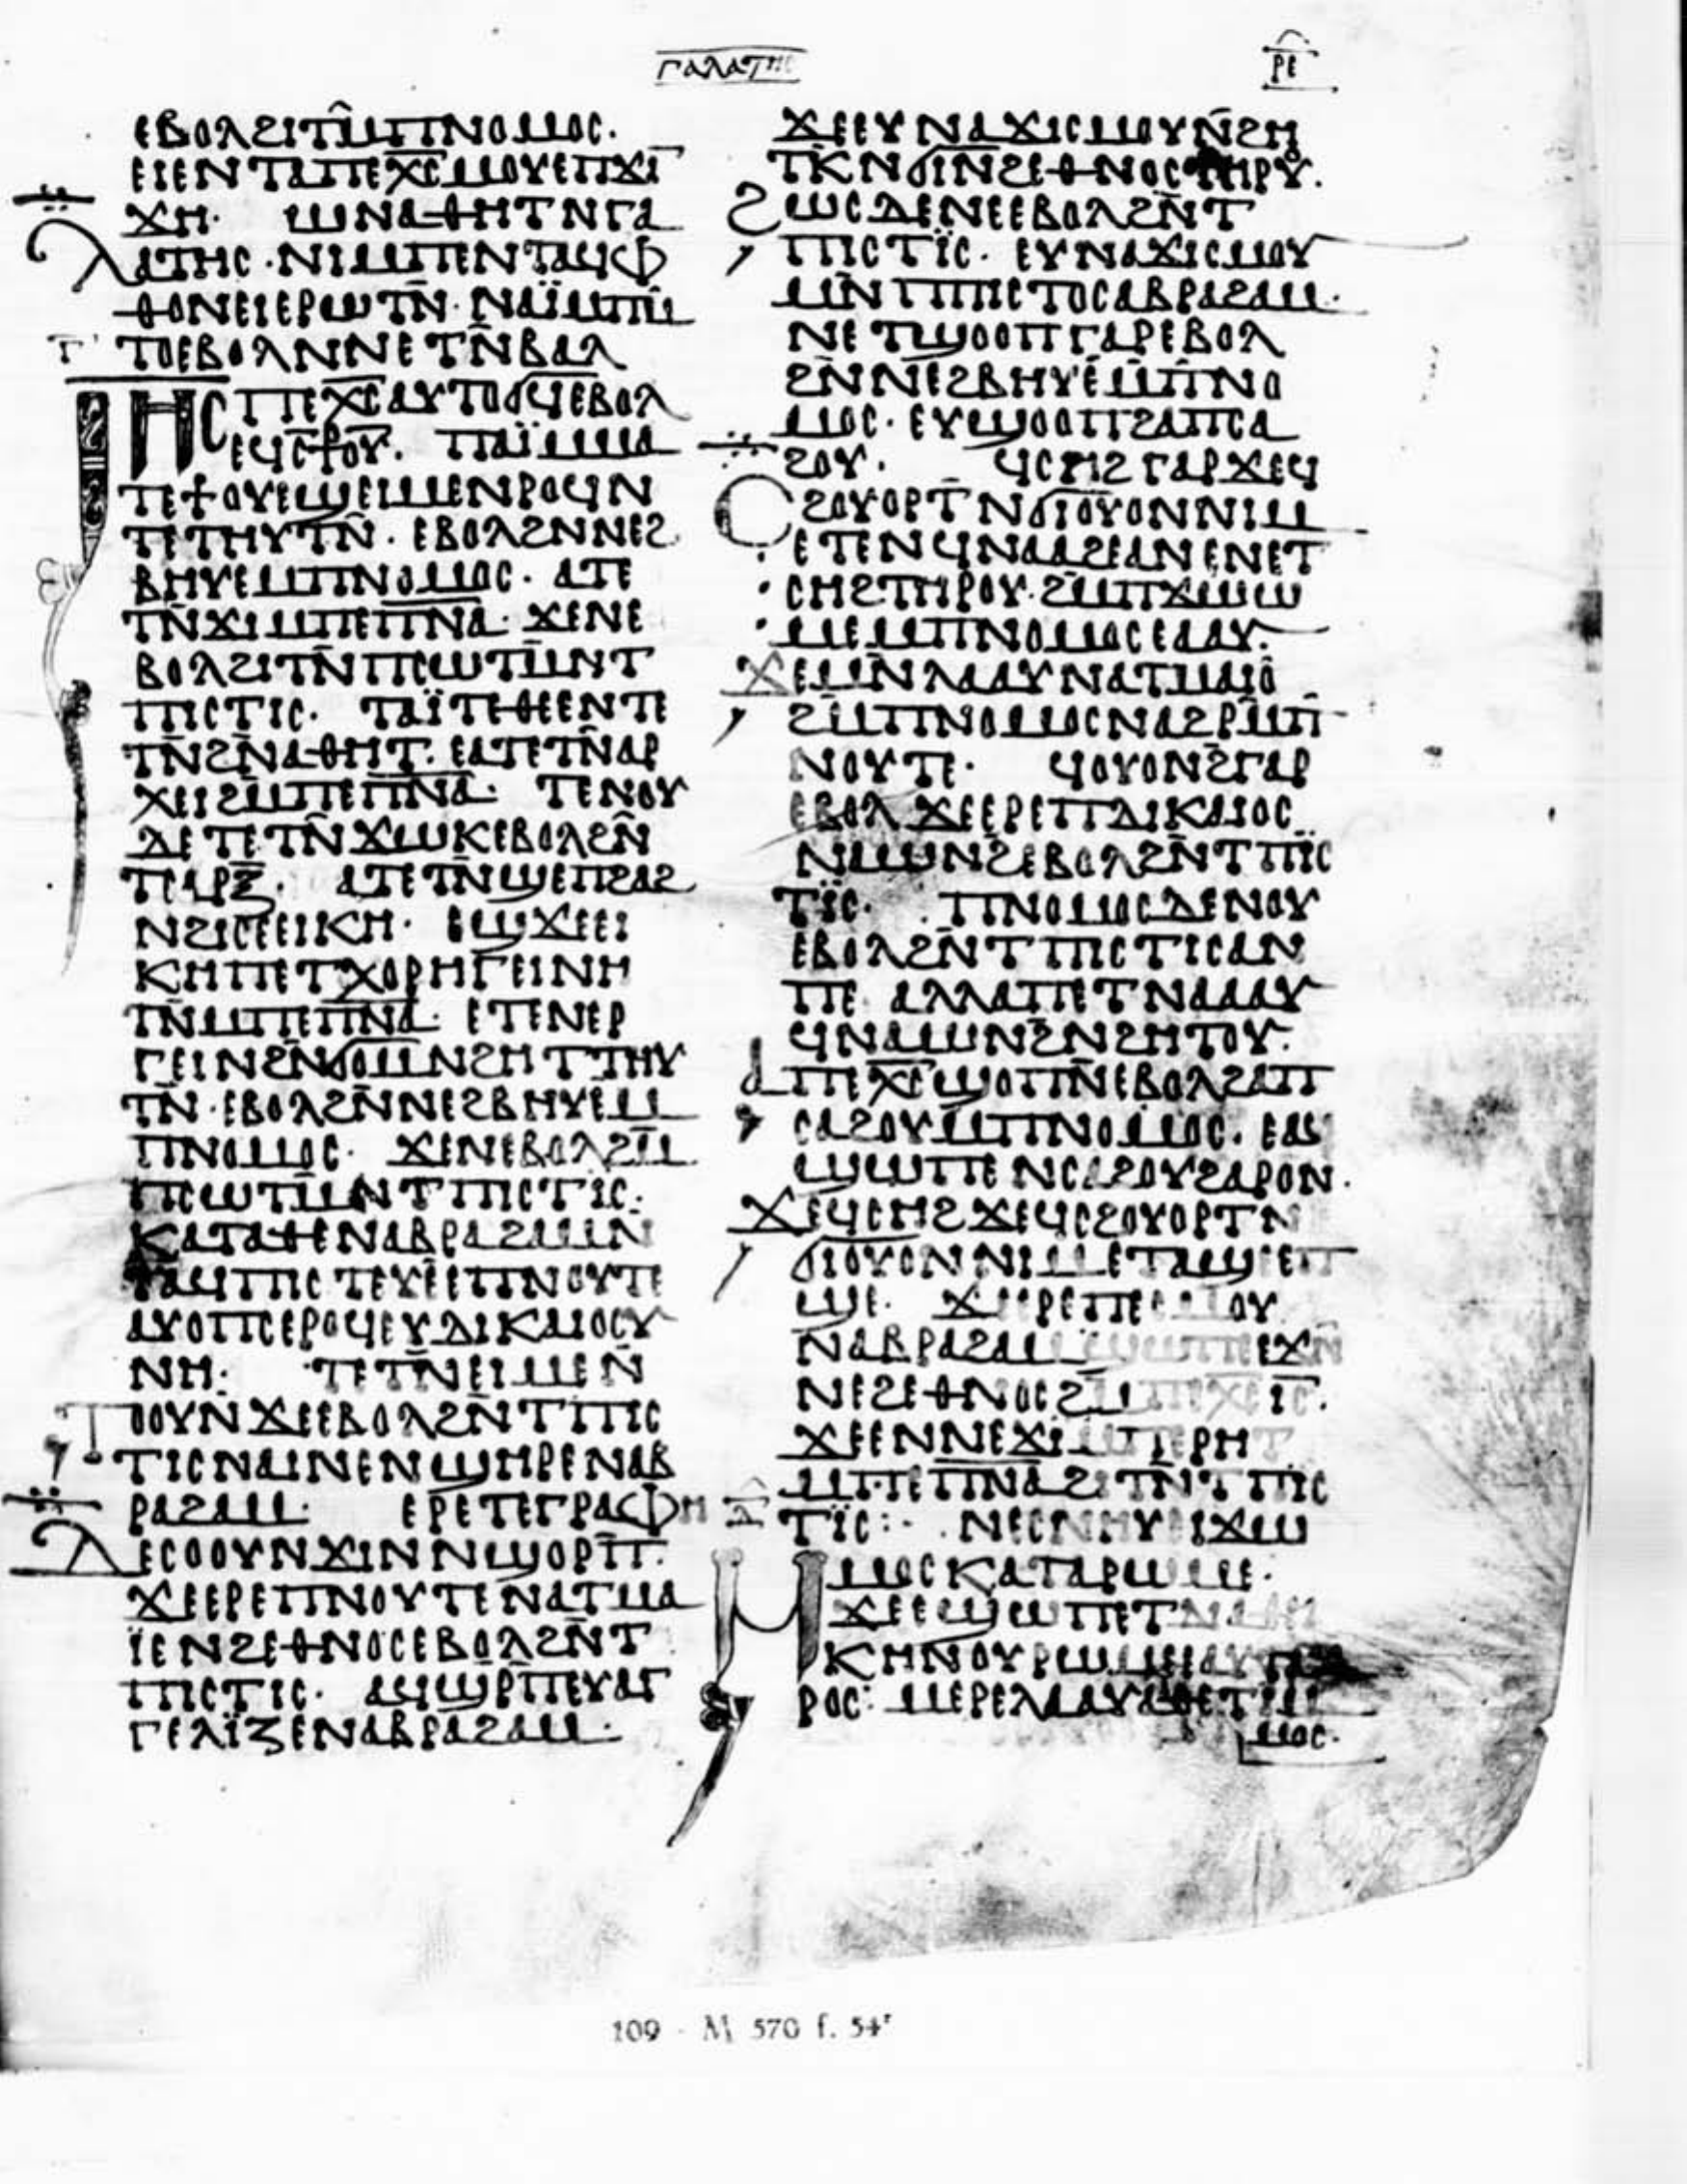 ⲅⲁⲗⲁⲧⲏⲥ
ⲣⲉ
ⲉⲃⲟⲗϩⲓⲧⲙ̂ⲡⲛⲟⲙⲟⲥ·
ⲉⲓⲉⲛⲧⲁⲡⲉⲭ̅ⲥ̅ⲙⲟⲩⲉⲡϫⲓ
ϫⲏ· ⲱⲛⲁⲑⲏⲧⲛⲅⲁ
ⲗⲁⲧⲏⲥ·ⲛⲓⲙⲡⲉⲛⲧⲁϥⲫ
ⲑⲟⲛⲉⲓⲉⲣⲱⲧⲛ̄·ⲛⲁⲓ̈ⲙⲡⲙ̄
ⲧⲟⲉⲃⲟⲗⲛⲛⲉⲧⲛ̄ⲃⲁⲗ
ⲓ̅ⲏ̅ⲥ̅ⲡⲉⲭ̅ⲥ̅ⲁⲩⲧⲟϭϥⲉⲃⲟⲗ
ⲉϥⲥ⳨ⲟⲩ· ⲡⲁⲓ̈ⲙⲙⲁ
ⲧⲉϯⲟⲩⲉϣⲉⲓⲙⲉⲛⲣⲟϥⲛ
ⲧⲉⲧⲏⲩⲧⲛ̄·ⲉⲃⲟⲗϩⲛⲛⲉϩ
ⲃⲏⲩⲉⲙⲡⲛⲟⲙⲟⲥ· ⲁⲧⲉ
ⲧⲛ̄ϫⲓⲙⲡⲉⲡ̅ⲛ̅ⲁ̅· ϫⲉⲛⲉ
ⲃⲟⲗϩⲓⲧⲛ̄ⲡⲥⲱⲧⲙ̄ⲛⲧ
ⲡⲓⲥⲧⲓⲥ· ⲧⲁⲓ̈ⲧⲉⲑⲉⲉⲛⲧⲉ
ⲧⲛ̄ϩⲛ̄ⲁⲑⲏⲧ·ⲉⲁⲧⲉⲧⲛ̄ⲁⲣ
ⲭⲉⲓϩⲙⲡⲉⲡ̅ⲛ̅ⲁ̅· ⲧⲉⲛⲟⲩ
ⲇⲉⲧⲉⲧⲛ̄ϫⲱⲕⲉⲃⲟⲗϩⲛ̄
ⲧⲥⲁⲣⲝ̄· ⲁⲧⲉⲧⲛ̄ϣⲉⲡϩⲁϩ
ⲛϩⲓⲥⲉⲉⲓⲕⲏ· ⲉϣϫⲉⲉⲓ
ⲕⲏⲡⲉⲧⲭⲟⲣⲏⲅⲉⲓⲛⲏ
ⲧⲛ̄ⲙⲡⲉⲡ̅ⲛ̅ⲁ̅· ⲉⲧⲉⲛⲉⲣ
ⲅⲉⲓⲛϩⲛ̄ϭⲟⲙⲛϩⲏⲧⲧⲏⲩ
ⲧⲛ̄·ⲉⲃⲟⲗϩⲛ̄ⲛⲉϩⲃⲏⲩⲉⲙ
ⲡⲛⲟⲙⲟⲥ· ϫⲉⲛⲉⲃⲟⲗϩⲙ̄
ⲡⲥⲱⲧⲙ̄ⲛⲧⲡⲓⲥⲧⲓⲥ·
ⲕⲁⲧⲁⲑⲉⲛⲁⲃⲣⲁϩⲁⲙⲛ
ⲧⲁϥⲡⲓⲥⲧⲉⲩⲉⲉⲡⲛⲟⲩⲧⲉ
ⲁⲩⲟⲡⲥⲉⲣⲟϥⲉⲩⲇⲓⲕⲁⲓⲟⲥⲩ
ⲛⲏ· ⲧⲉⲧⲛ̄ⲉⲓⲙⲉⲛ̄
ⲧⲟⲟⲩⲛϫⲉⲉⲃⲟⲗϩⲛ̄ⲧⲡⲓⲥ
ⲧⲓⲥⲛⲁⲓⲛⲉⲛϣⲏⲣⲉⲛⲁⲃ
ⲣⲁϩⲁⲙ· ⲉⲣⲉⲧⲉⲅⲣⲁⲫⲏ
ⲇⲉⲥⲟⲟⲩⲛϫⲓⲛⲛϣⲟⲣⲡ̄·
ϫⲉⲉⲣⲉⲡⲛⲟⲩⲧⲉⲛⲁⲧⲙⲁ
ⲓ̈ⲉⲛϩⲉⲑⲛⲟⲥⲉⲃⲟⲗϩⲛ̄ⲧ
ⲡⲓⲥⲧⲓⲥ· ⲁϥϣⲣ̄ⲡⲉⲩⲁⲅ
ⲅⲉⲗⲓ̈ⲍⲉⲛⲁⲃⲣⲁϩⲁⲙ·
ϫⲉⲉⲩⲛⲁϫⲓⲥⲙⲟⲩⲛ̄ϩⲏ
ⲧⲕ̄ⲛϭⲓⲛϩⲉⲑⲛⲟⲥⲧⲏⲣⲩ·
ϩⲱⲥⲇⲉⲛⲉⲉⲃⲟⲗϩⲛ̄ⲧ
ⲡⲓⲥⲧⲓ̈ⲥ· ⲉⲩⲛⲁϫⲓⲥⲙⲟⲩ
ⲙⲛ̄ⲡⲡⲓⲥⲧⲟⲥⲁⲃⲣⲁϩⲁⲙ·
ⲛⲉⲧϣⲟⲟⲡⲅⲁⲣⲉⲃⲟⲗ
ϩⲛⲛⲉϩⲃⲏⲩⲉⲙⲡⲛⲟ
ⲙⲟⲥ·ⲉⲩϣⲟⲟⲡϩⲁⲡⲥⲁ
ϩⲟⲩ· ϥⲥⲏϩⲅⲁⲣϫⲉϥ
ⲥϩⲟⲩⲟⲣⲧⲛ̄ϭⲓⲟⲩⲟⲛⲛⲓⲙ
ⲉⲧⲉⲛϥⲛⲁⲁϩⲉⲁⲛⲉⲛⲉⲧ
ⲥⲏϩⲧⲏⲣⲟⲩ·ϩⲙⲡϫⲱⲱ
ⲙⲉⲙⲡⲛⲟⲙⲟⲥⲉⲁⲁⲩ·
ϫⲉⲙⲛ̄ⲗⲁⲁⲩⲛⲁⲧⲙⲁⲓⲟ
ϩⲙⲡⲛⲟⲙⲟⲥⲛⲁϩⲣⲙ̄ⲡ
ⲛⲟⲩⲧⲉ· ϥⲟⲩⲟⲛϩ̄ⲅⲁⲣ
ⲉⲃⲟⲗϫⲉⲉⲣⲉⲡⲇⲓⲕⲁⲓⲟⲥ
ⲛⲁⲱⲛϩⲉⲃⲟⲗϩⲛ̄ⲧⲡⲓⲥ
ⲧⲓ̈ⲥ· ⲡⲛⲟⲙⲟⲥⲇⲉⲛⲟⲩ
ⲉⲃⲟⲗϩⲛ̄ⲧⲡⲓⲥⲧⲓⲥⲁⲛ
ⲡⲉ ⲁⲗⲗⲁⲡⲉⲧⲛⲁⲁⲁⲩ
ϥⲛⲁⲱⲛϩ̄ⲛϩⲏⲧⲟⲩ·
ⲁⲡⲉⲭ̅ⲥ̅ϣⲟⲡⲛ̄ⲉⲃⲟⲗϩⲁⲡ
ⲥⲁϩⲟⲩⲙⲡⲛⲟⲙⲟⲥ· ⲉⲁϥ
ϣⲱⲡⲉⲛⲥⲁϩⲟⲩϩⲁⲣⲟⲛ·
ϫⲉϥⲥⲏϩϫⲉϥⲥϩⲟⲩⲟⲣⲧⲛ
ϭⲓⲟⲩⲟⲛⲛⲓⲙⲉⲧⲁϣⲉⲉⲡ
ϣⲉ· ϫⲉⲉⲣⲉⲡⲉⲥⲙⲟⲩ
ⲛⲁⲃⲣⲁϩⲁⲙϣⲱⲡⲉⲉϫⲛ̄
ⲛⲉϩⲉⲑⲛⲟⲥϩⲙⲡⲉⲭ̅ⲥ̅ⲓ̅ⲥ̅·
ϫⲉⲉⲛⲛⲉϫⲓⲙⲡⲉⲣⲏⲧ
ⲙⲡⲉⲡ̅ⲛ̅ⲁ̅ϩⲓⲧⲛ̄ⲧⲡⲓⲥ
ⲧⲓ̈ⲥ:· ⲛⲉⲥⲛⲏⲩⲉⲓϫⲱ
ⲙⲙⲟⲥⲕⲁⲧⲁⲣⲱⲙⲉ·
ϫⲉⲉϣⲱⲡⲉⲧⲇⲓⲁⲑⲏ
ⲕⲏⲛⲟⲩⲣⲱⲙⲉⲁⲩⲧⲁϫ
ⲣⲟⲥ· ⲙⲉⲣⲉⲗⲁⲁⲩⲁⲑⲉⲧⲓⲙ
ⲙⲟⲥ·
109 - M 570 f. 54ʳ